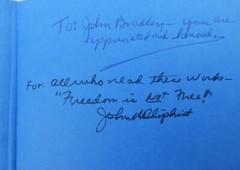 To: John Bradley - you are
appreciated and honored
For: all who read these works -
"Freedom is NOT Free!"
John